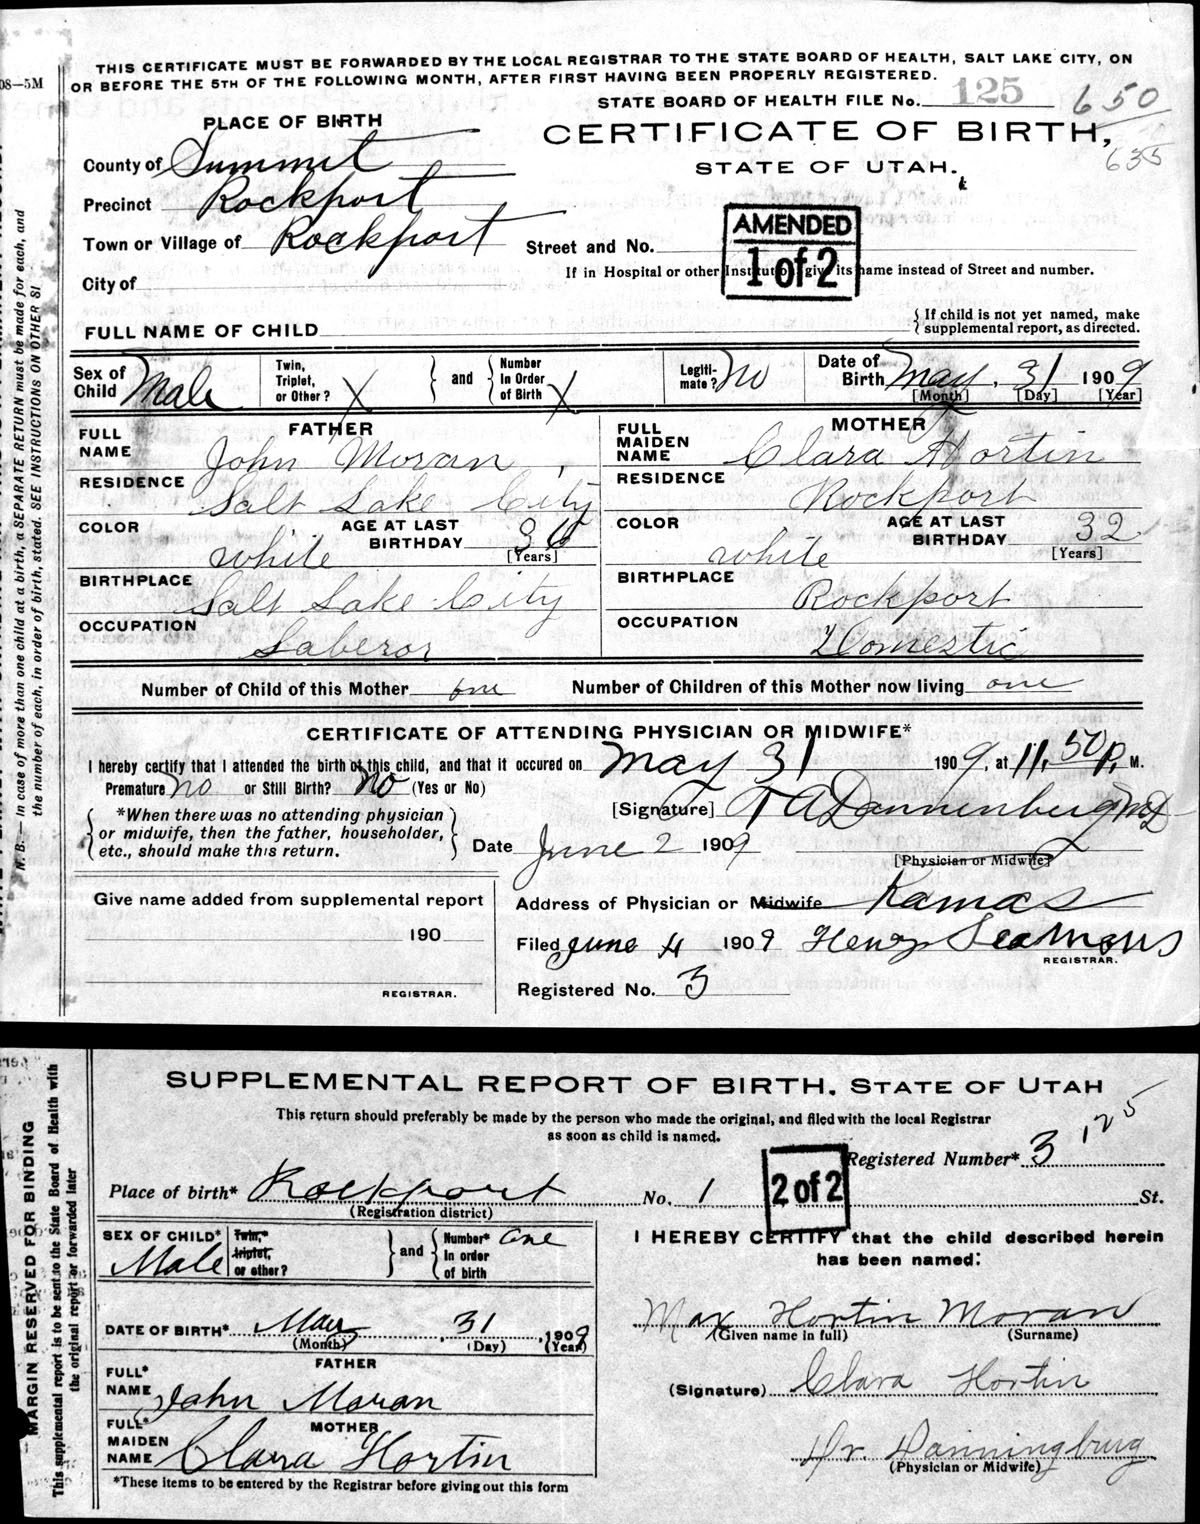 THIS CERTIFICATE MUST BE FORWARDED BY THE LOCAL REGISTRAR TO THE STATE BOARD OF HEALTH, SALT LAKE CITY, ON
OR BEFORE THE 5TH OF THE FOLLOWING MONTH, AFTER FIRST HAVING BEEN PROPERLY REGISTERED.
08—5M
STATE BOARD OF HEALTH FILE No. 125 650
635
PLACE OF BIRTH
CERTIFICATE OF BIRTH,
STATE OF UTAH.
County of Summit
Precinct Rockport
Town or Village of Rockport
City of
Street and No.
AMENDED
1 of 2
If in Hospital or other Institution, give its name instead of Street and number.
FULL NAME OF CHILD
{ If child is not yet named, make
supplemental report, as directed.
Sex of Child Male
Twin, Triplet, or Other? X
and
Number In Order of Birth X
Legiti-mate? No
Date of Birth May 31 1909
[Month] [Day] [Year]
FATHER
FULL NAME John Moran
RESIDENCE Salt Lake City
COLOR white
AGE AT LAST BIRTHDAY 36 [Years]
BIRTHPLACE Salt Lake City
OCCUPATION Laberor
MOTHER
FULL MAIDEN NAME Clara Hortin
RESIDENCE Rockport
COLOR white
AGE AT LAST BIRTHDAY 32 [Years]
BIRTHPLACE Rockport
OCCUPATION Domestic
Number of Child of this Mother one Number of Children of this Mother now living one
CERTIFICATE OF ATTENDING PHYSICIAN OR MIDWIFE*
I hereby certify that I attended the birth of this child, and that it occured on May 31 1909, at 11.50 P. M.
Premature No or Still Birth? No (Yes or No)
[Signature] T A Dannenberg MD
*When there was no attending physician
or midwife, then the father, householder,
etc., should make this return.
Date June 2 1909
[Physician or Midwife]
Give name added from supplemental report
190
REGISTRAR.
Address of Physician or Midwife Kamas
Filed June 4 1909 Henry Seamons
REGISTRAR.
Registered No. 3
N. B.—In case of more than one child at a birth, a SEPARATE RETURN must be made for each, and
the number of each, in order of birth, stated. SEE INSTRUCTIONS ON OTHER SI
SUPPLEMENTAL REPORT OF BIRTH. STATE OF UTAH
This return should preferably be made by the person who made the original, and filed with the local Registrar
as soon as child is named.
125
Registered Number* 3
Place of birth* Rockport No. 1 St.
(Registration district)
2 of 2
SEX OF CHILD* Male
Twin,* triplet, or other?
and
Number* In order of birth one
DATE OF BIRTH* May 31, 1909
(Month) (Day) (Year)
FATHER
FULL* NAME John Moran
MOTHER
FULL* MAIDEN NAME Clara Hortin
*These items to be entered by the Registrar before giving out this form
I HEREBY CERTIFY that the child described herein
has been named:
Max Hortin Moran
(Given name in full) (Surname)
(Signature) Clara Hortin
Dr. Danningburg
(Physician or Midwife)
MARGIN RESERVED FOR BINDING
This supplemental report is to be sent to the State Board of Health with
the original report or forwarded later